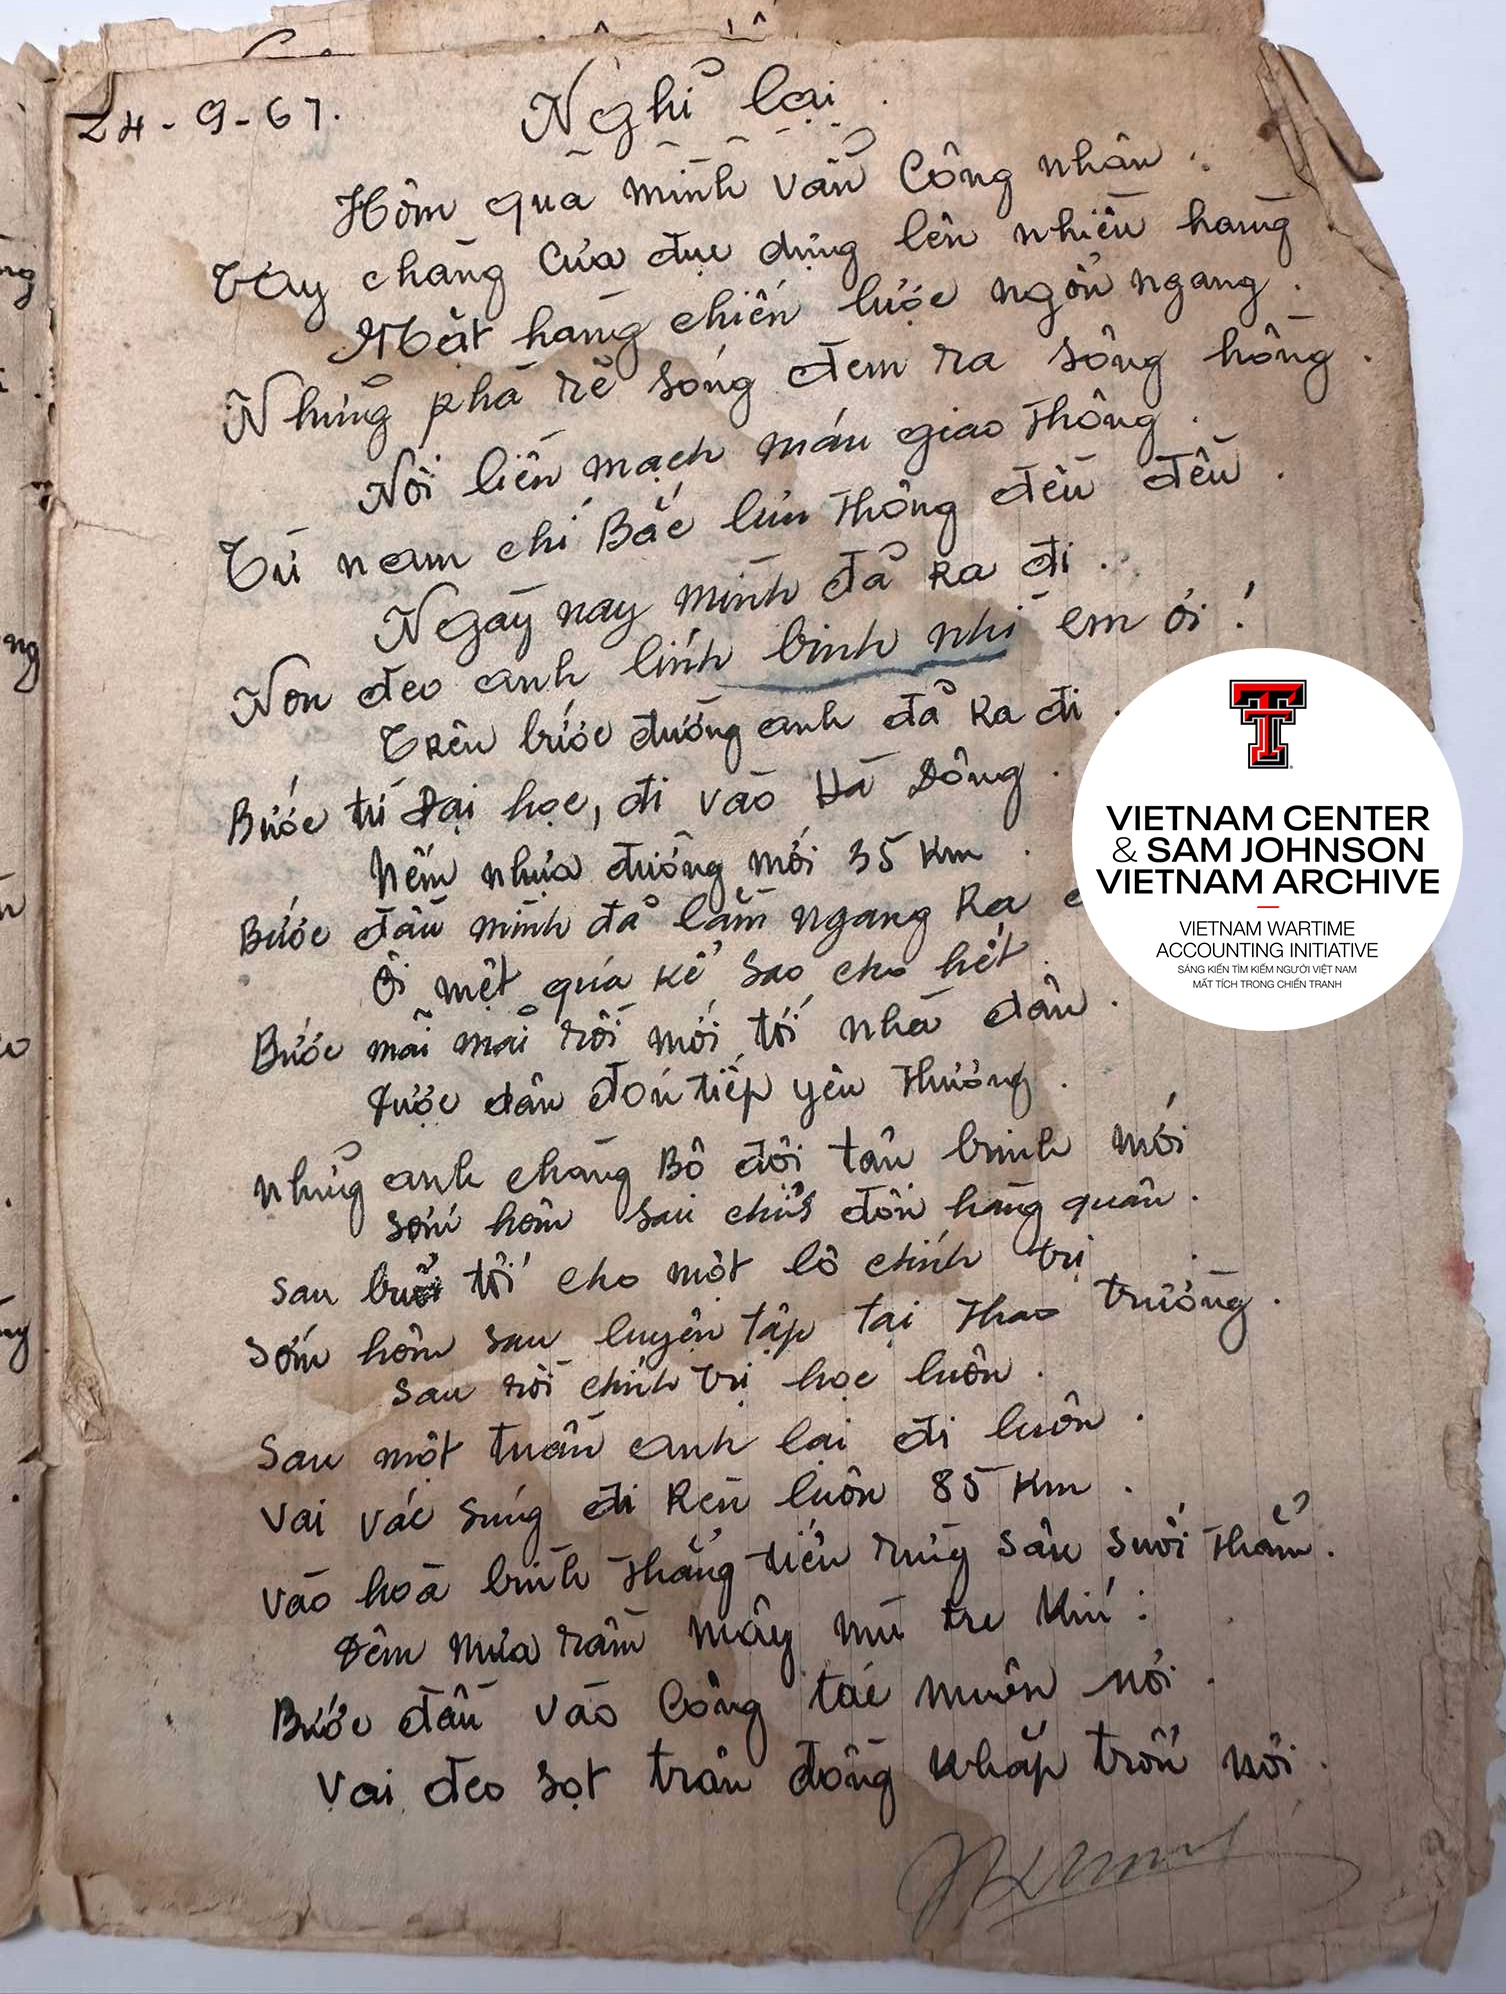 24-9-67.
Nghỉ lại.
Hôm qua mình vẫn Công nhân.
Tay chàng Cửa đục dựng lên nhiều hàng
Mặt hàng chiến lược ngổn ngang.
Nhưng phà rẽ sóng đem ra sông hồng.
Nối liền mạch máu giao thông.
Từ nam chí Bắc lưu thông đều đều.
Ngày nay mình đả Ra đi.
Non đeo anh lính binh nhì em ơi!
Trên bước đường anh đả Ra đi.
Bước từ Đại học, đi vào Hà Đông.
Nếm nhựa đường mới 35 Km.
Bước đầu mình đả lắm ngang Ra
Ôi mệt quá Kể sao cho hết.
Bước mãi mải rồi mới tới nhà dân.
Được dân đón tiếp yêu thương.
Nhửng anh chàng Bộ đội tân binh mới
Sớm hôm sau chỉnh đốn hàng quân.
Sau buổi tối cho một lô chính trị
Sớm hôm sau luyện tập tại Thao trường.
Sau rồi chính trị học luôn.
Sau một tuần anh lại đi luôn.
Vai vác súng đi Rèn luôn 85 Km.
Vào hoà bình Thẳng tiến rừng sâu suối Thẳm.
Đêm mưa rầm mây mù tre Kín:
Bước đầu vào Công tác muôn nơi.
Vai đeo sọt trân đồng Khắp trốn nơi.
VIETNAM CENTER
& SAM JOHNSON
VIETNAM ARCHIVE
VIETNAM WARTIME
ACCOUNTING INITIATIVE
SÁNG KIẾN TÌM KIẾM NGƯỜI VIỆT NAM
MẤT TÍCH TRONG CHIẾN TRANH